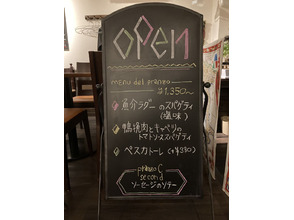 OPEN
menu del pranzo
¥1,350~
魚介ラグーのスパゲティ
(塩味)
鴨挽肉とキャベツの
トマトソーススパゲティ
ペスカトーレ (+¥330)
primo C
second
ソーセージのソテー